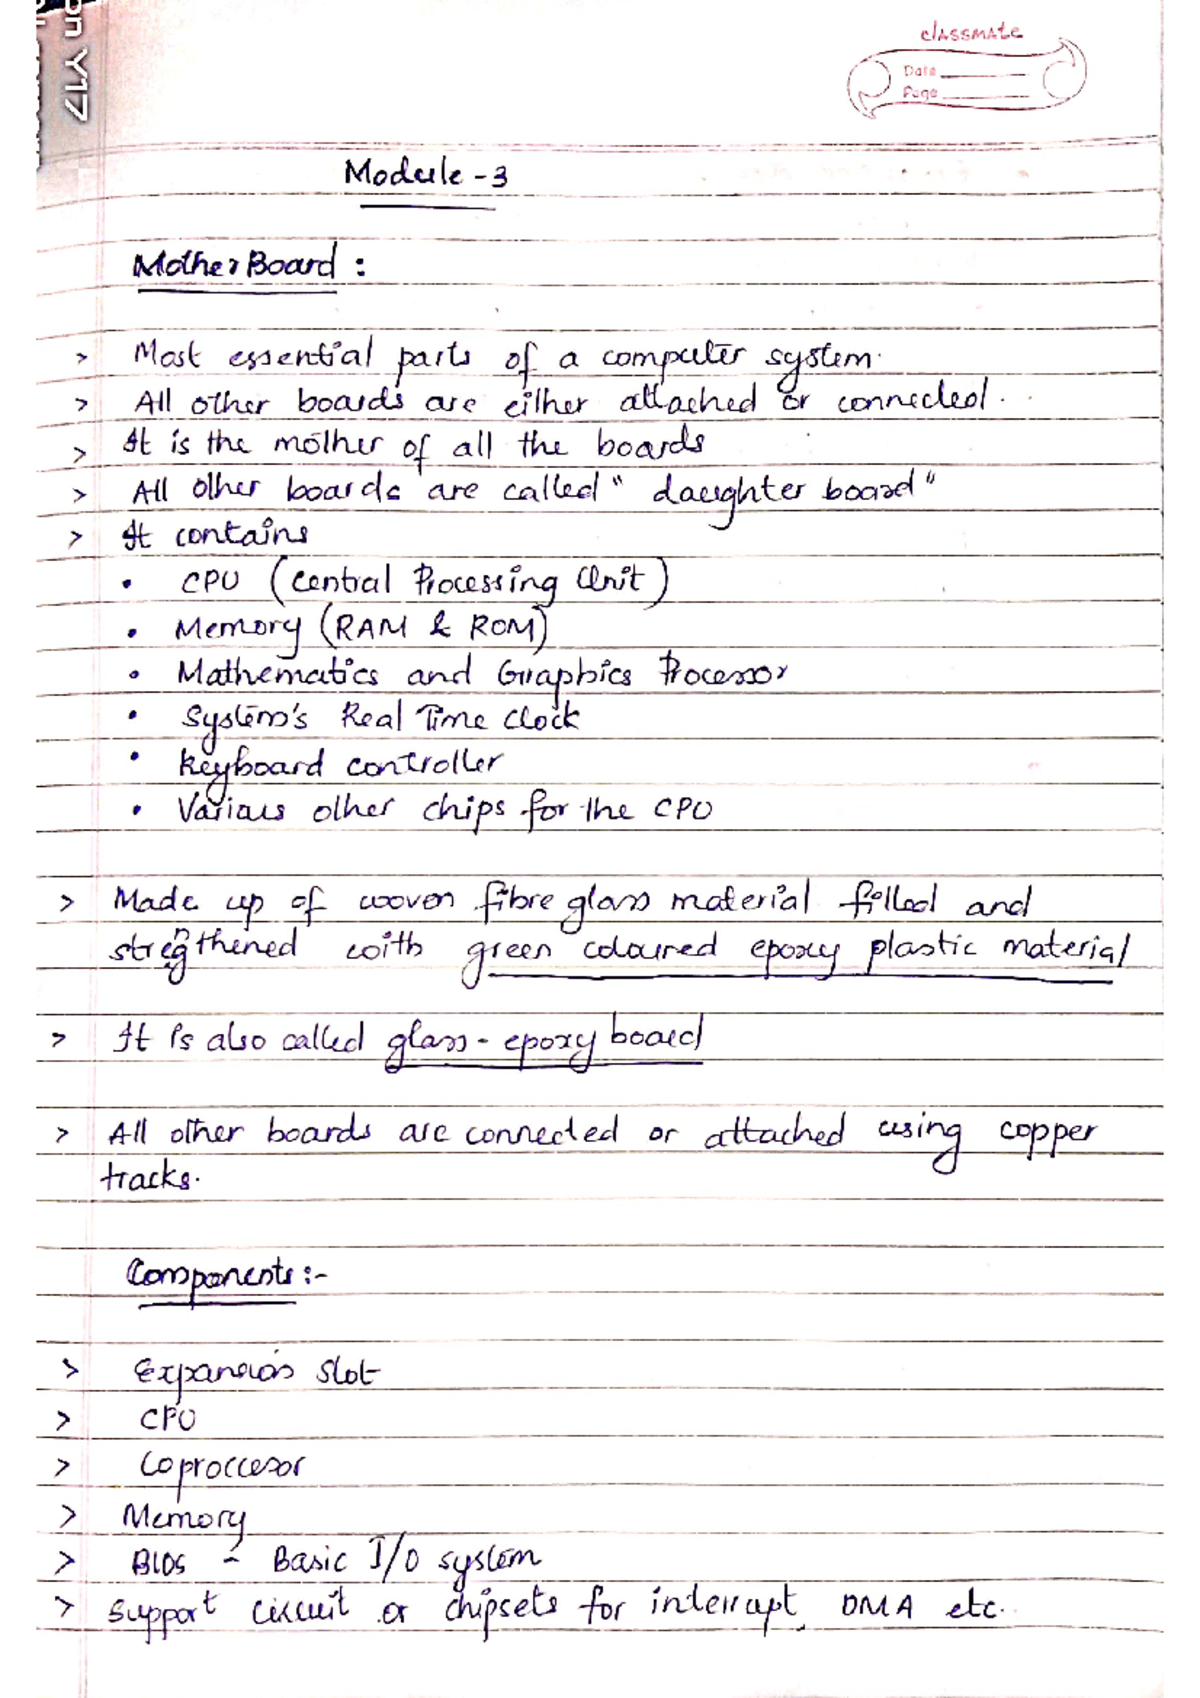 on Y17
classmate
Date
Page
Module - 3
MotherBoard :
> Most essential parts of a computer system.
> All other boards are either attached or connected.
> It is the mother of all the boards
> All other boards are called "daughter board"
> It contains
• CPU (Central Processing Unit)
• Memory (RAM & ROM)
• Mathematics and Graphics Processor
• System's Real Time Clock
• Keyboard controller
• Various other chips for the CPU
> Made up of woven fibre glass material filled and
strengthened with green coloured epoxy plastic material
> It is also called glass-epoxy board
> All other boards are connected or attached using copper
tracks.
Components :-
> Expansion slot
> CPU
> Coproccesor
> Memory
> BIOS - Basic I/O system
> Support circuit or chipsets for interrupt, DMA etc.